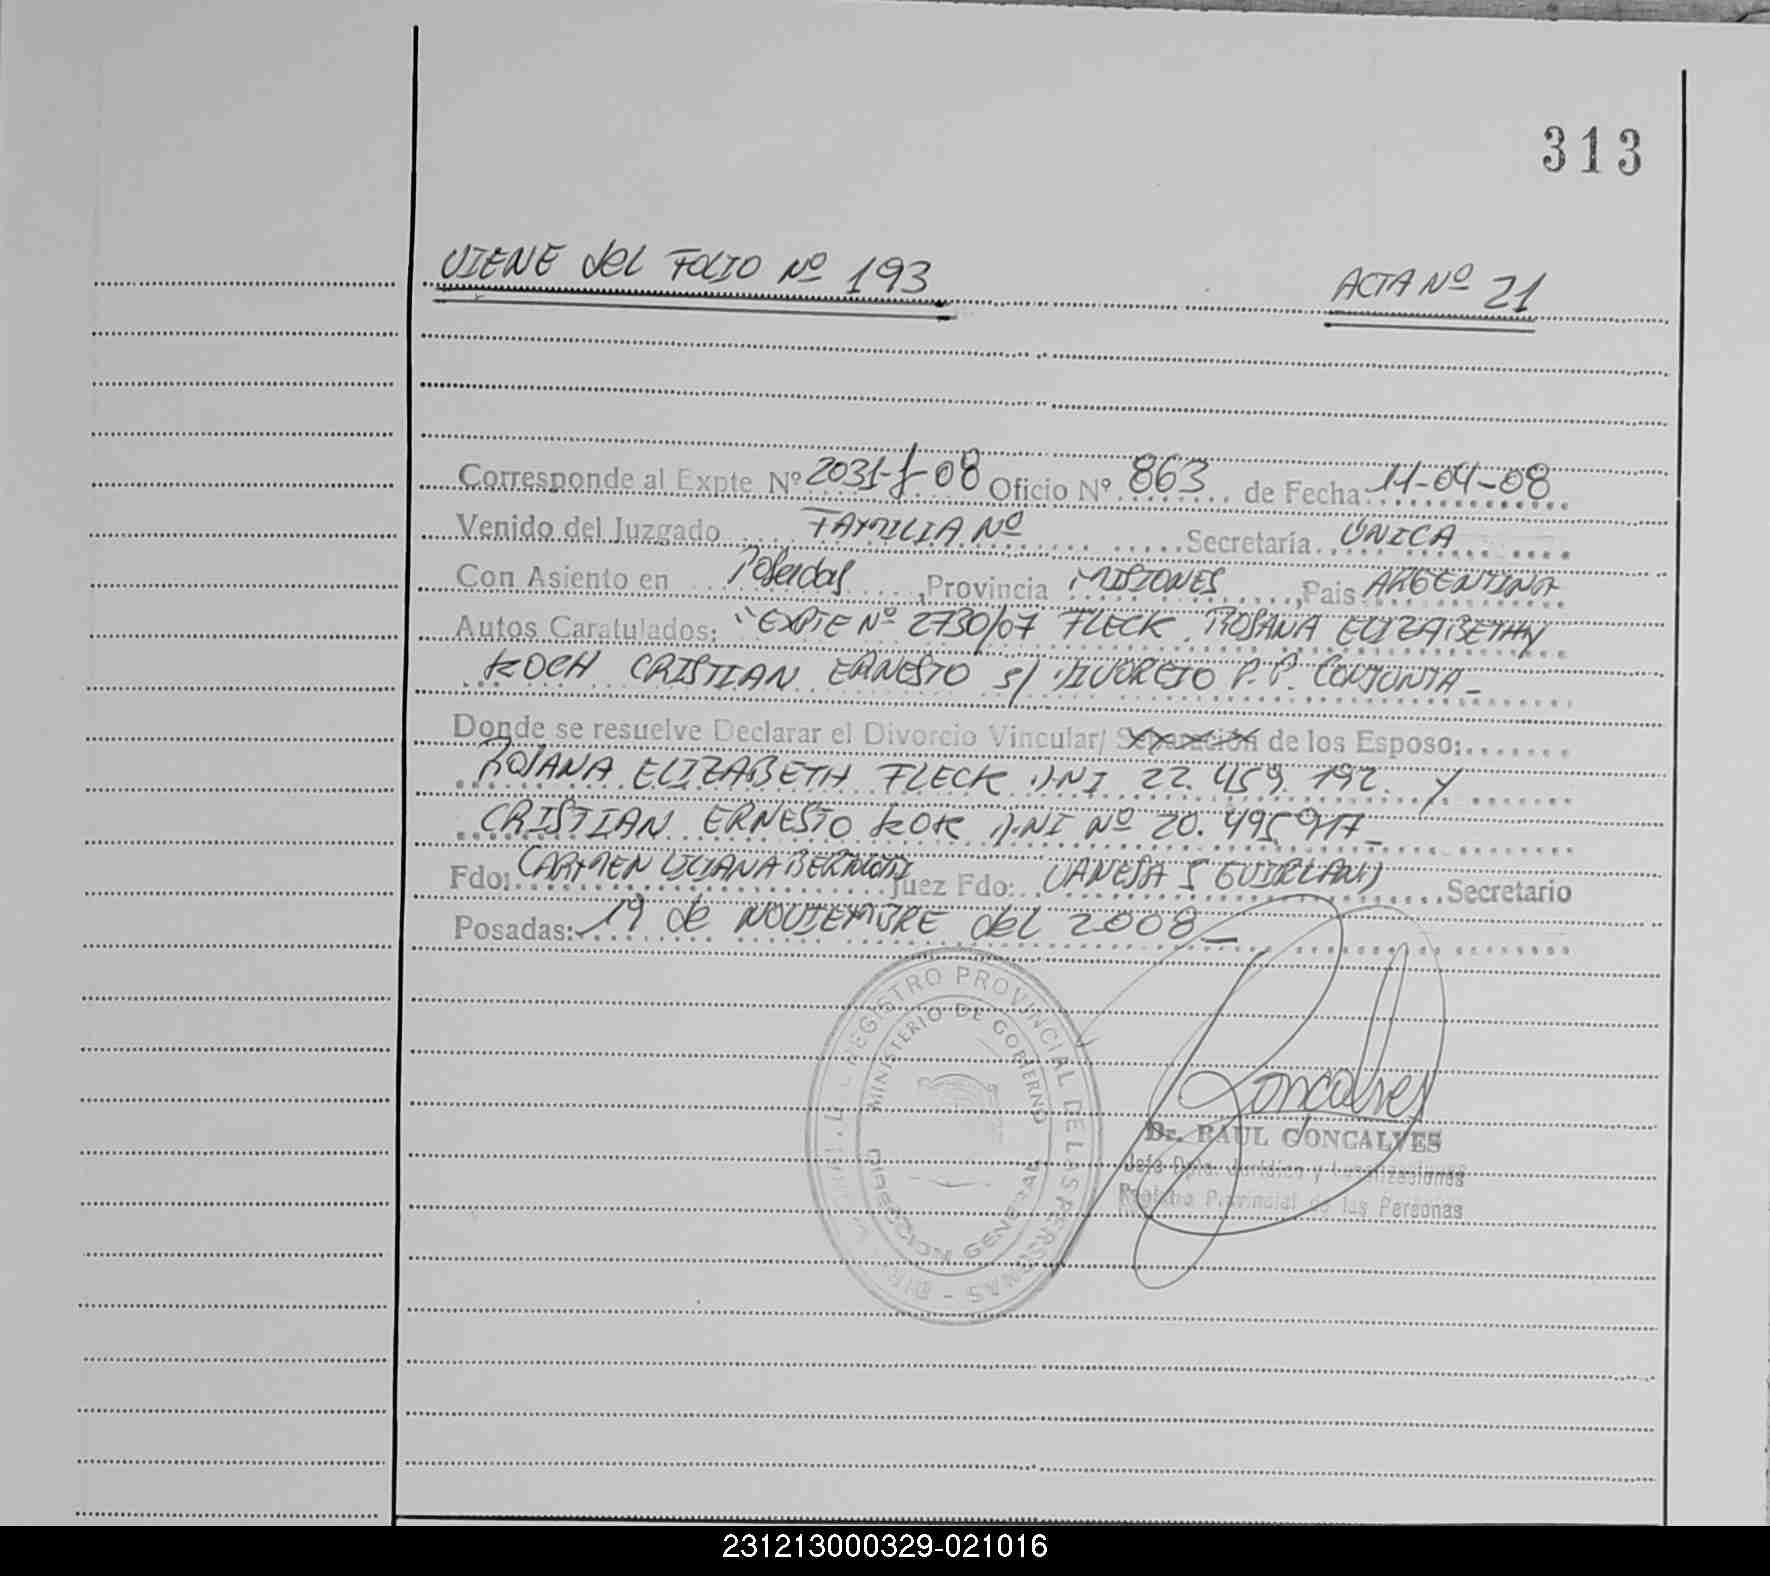 313
VIENE del FOLIO Nº 193 ACTA Nº 21
Corresponde al Expte Nº 2031-f-08 Oficio Nº 863 de Fecha: 11-04-08
Venido del Juzgado FAMILIA Nº Secretaría ÚNICA
Con Asiento en Posadas, Provincia MISIONES, Pais ARGENTINA
Autos Caratulados: "EXPTE Nº 2730/07 FLECK ROSANA ELIZABETH y
KOCH CRISTIAN ERNESTO s/ DIVORCIO P.P. CONJUNTA-
Donde se resuelve Declarar el Divorcio Vincular/ Separación de los Esposo:
ROSANA ELIZABETH FLECK D.NI 22.459.192. y
CRISTIAN ERNESTO KOK D.NI Nº 20.495917-
Fdo: CARMEN LILIANA Juez Fdo: VANESA S GUIRLAND Secretario
Posadas: 19 de NOVIEMBRE del 2008-
REGISTRO PROVINCIAL DE LAS PERSONAS
MINISTERIO DE GOBIERNO
DIRECCION GENERAL
Goncalves
Dr. RAUL GONCALVES
Jefe Dpto. Jurídico y
Registro Provincial de las Personas
231213000329-021016